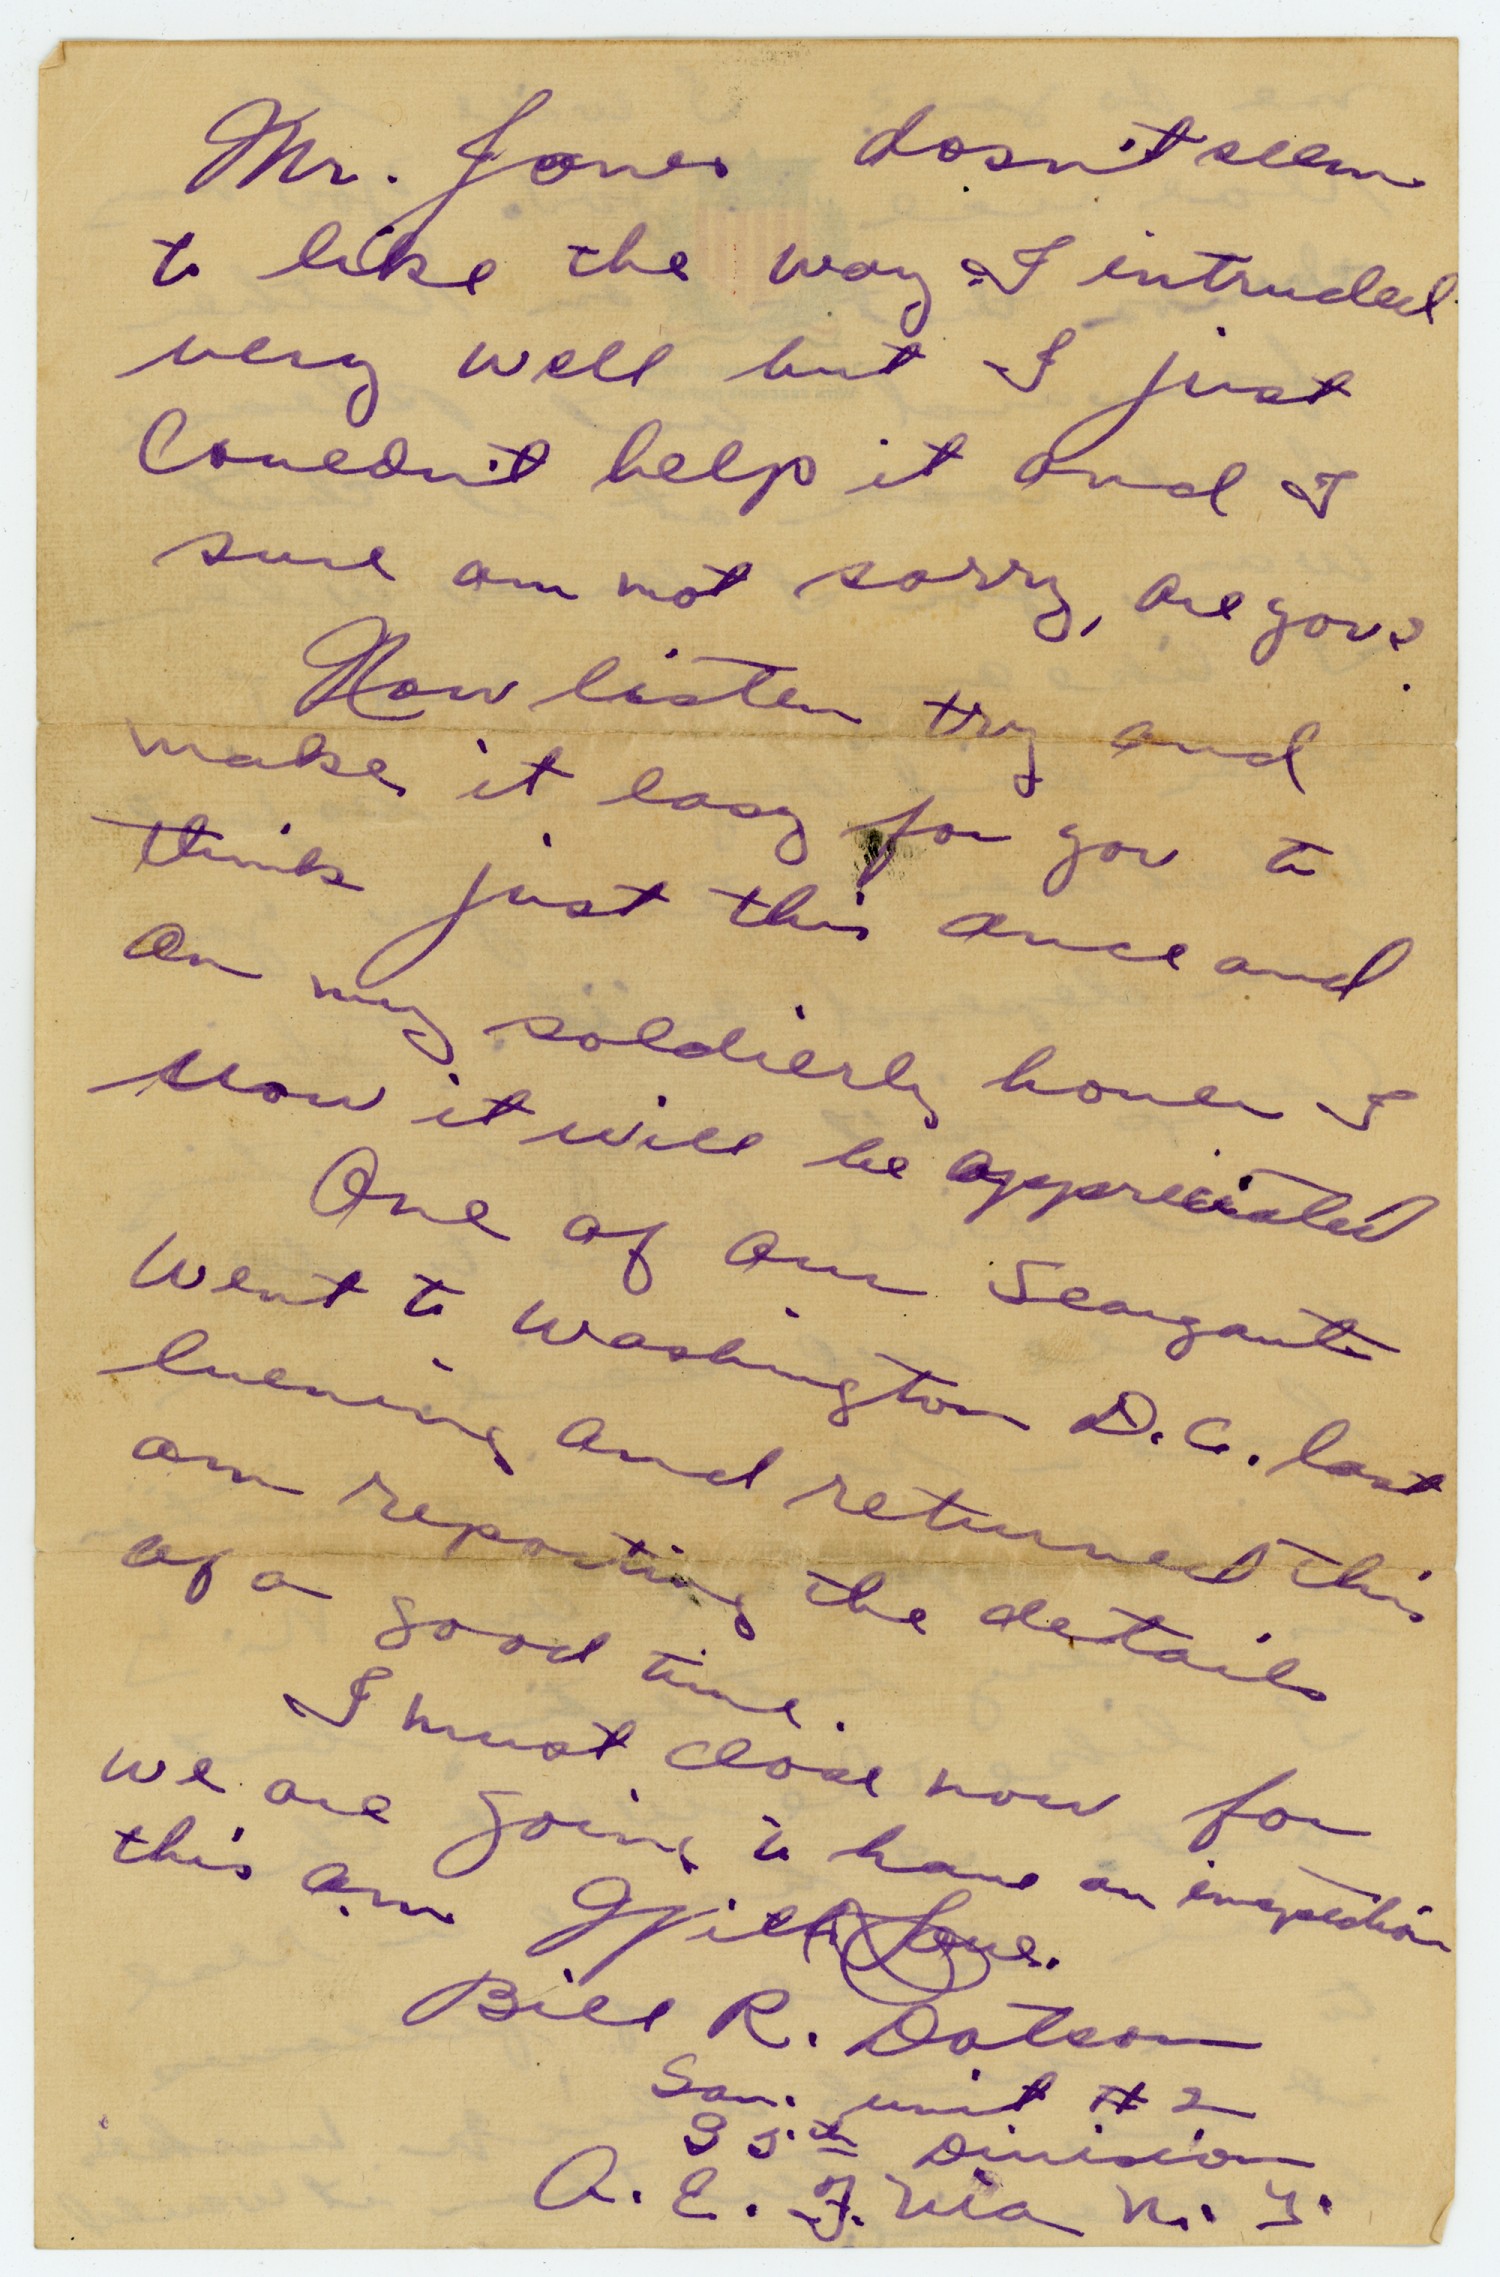 Mr. Jones dosn't seem
to like the way I intruded
very well but I just
Couldn't help it and I
sure am not sorry, are you?
Now listen try and
make it easy for you to
think just this once and
on my soldierly honer I
now it will be appriciated
One of our Seargants
went to Washington D.C. last
evening and returned this
am reporting the details
of a good time.
I must close now for
we are going to have an inspection
this am With Love.
Bill R. Dotson
San. unit # 2
35th Division
A. E. F. Via N. Y.